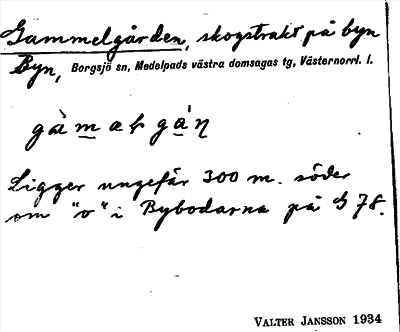 Gammelgården, skogstrakt på byn
Byn, Borgsjö sn, Medelpads västra domsagas tg, Västernorrl. l.
Ligger ungefär 300 m. söder
om "o" i Bybodarna på G 78.
VALTER JANSSON 1934